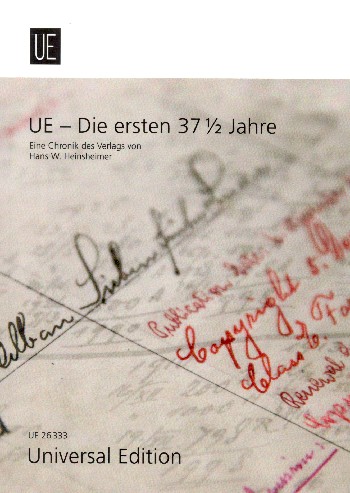 UE
UE – Die ersten 37 ½ Jahre
Eine Chronik des Verlags von
Hans W. Heinsheimer
Alban Sieben frühe Lieder
Publication
Copyright
Class E.
Renewal
UE 26 333
Universal Edition